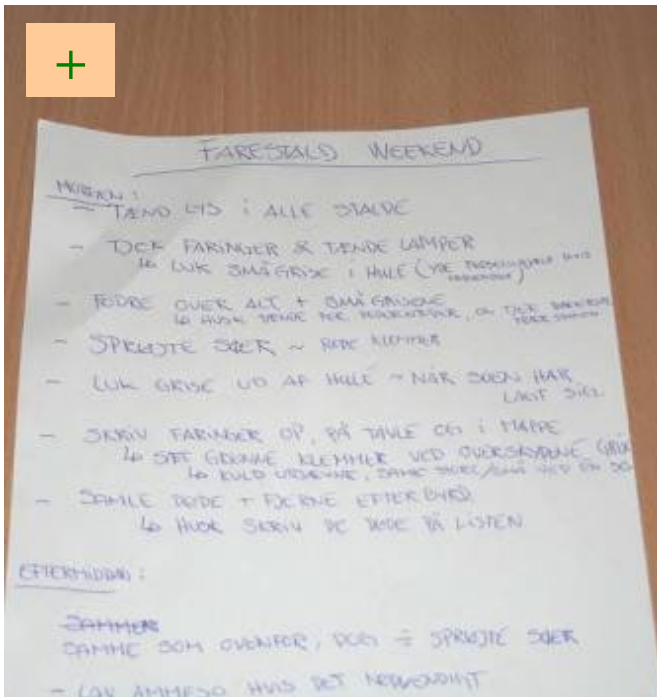 +
FARESTALD WEEKEND
MORGEN:
- TÆND LYS i ALLE STALDE
- TJCK FARINGER & TÆNDE LAMPER
↳ LUK SMÅGRISE I HULE (
- FODRE OVER ALT + SMÅGRISENE
↳ HUSK
- SPRØJTE SØER ~ RØDE KLEMMER
- LUK GRISE UD AF HULE ~ NÅR SOEN HAR
LAGT SIG.
- SKRIV FARINGER OP, PÅ TAVLE OG i MAPPE
↳ SÆT GRØNNE KLEMMER VED OVERSKYDENE GRISE
↳ KULD UDJÆVNE, SAMLE STORE/SMÅ VED EN SO
- SAMLE DØDE + FJERNE EFTERBYRD
↳ HUSK SKRIV DE DØDE PÅ LISTEN
EFTERMIDDAG:
SAMMEN
SAMME SOM OVENFOR, DOG ÷ SPRØJTE SØER
- LAV AMMESO HVIS DET NØDVENDIGT